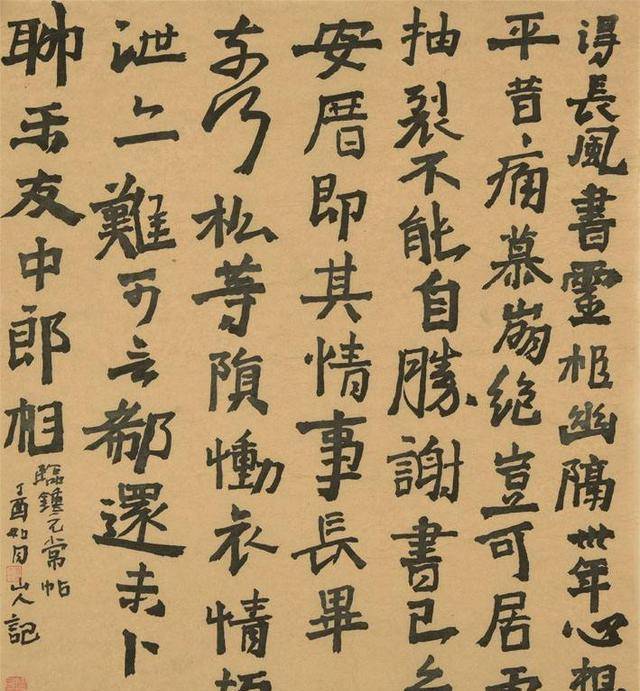 得長風書靈柩幽隔卅年心想
平昔痛慕崩絕豈可居
抽裂不能自勝謝書已
安厝即其情事長畢
奈何松等隕慟哀情
泄難可言郗還未卜
聊示友中郎相
臨鍾元常帖
丁酉如月山人記